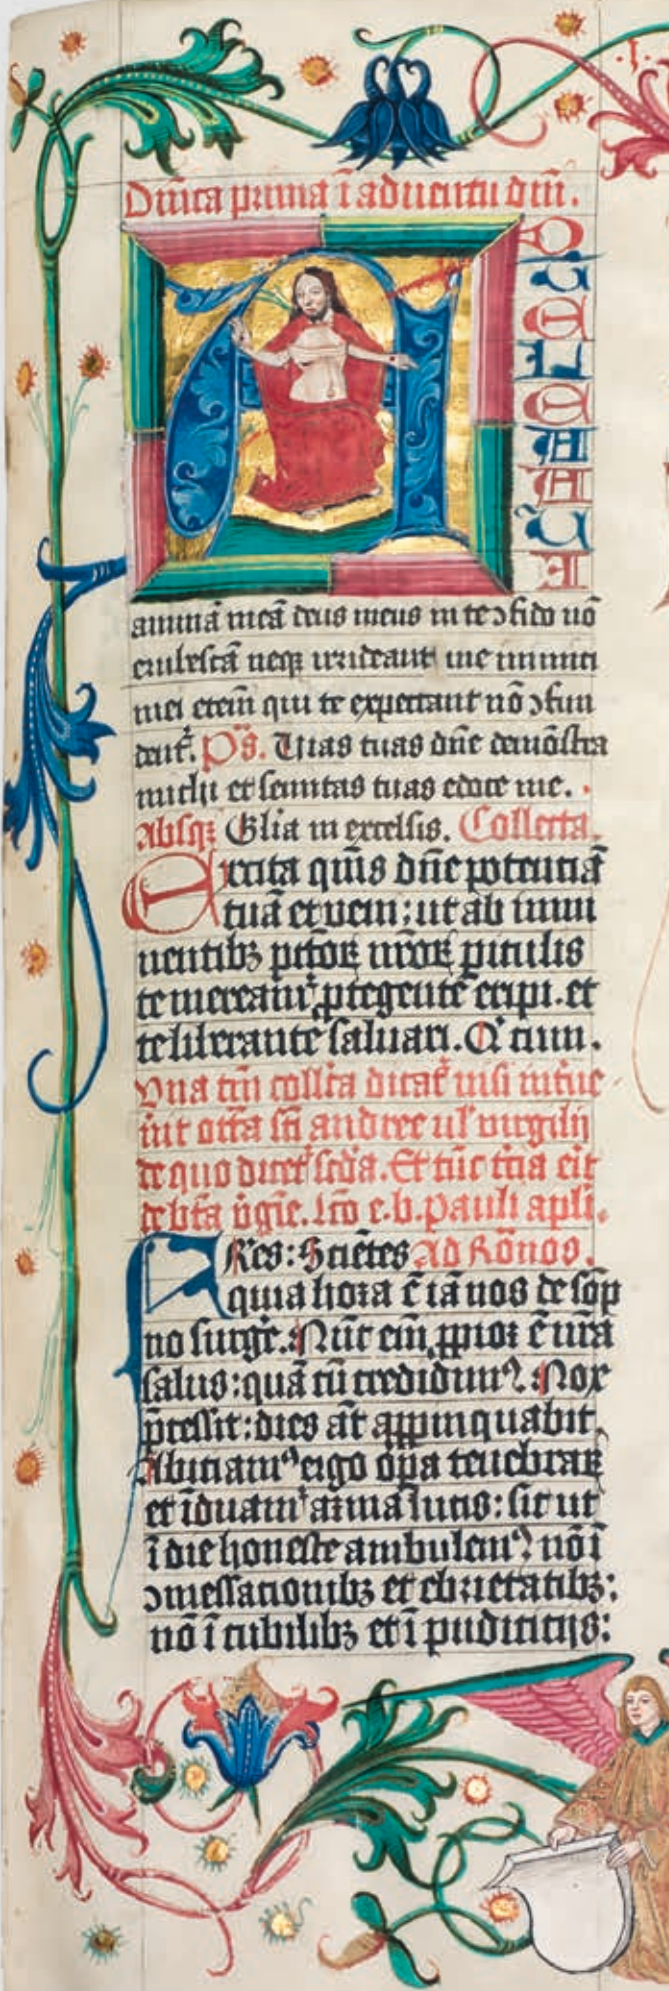 Dn̄ica prima ī aduentu dn̄i.
AD TE LEVAVI
animā meā deus meus in te ↄfido nō
erubescā neqꝫ irrideant me inimici
mei etem̄ qui te expectant nō ↄfun
dent᷑. P̄s. Uias tuas dn̄e demōstra
michi et semitas tuas edoce me.
Absqꝫ Gl̄ia in excelsis. Collecta.
Excita qūis dn̄e potentiā
tuā et veni: ut ab immi
nentibꝫ pc̄toꝝ nr̄oꝝ piculis
te mereamr̄ ꝓtegente eripi. et
te liberante saluari. Q̇ cum.
Vna tm̄ coll̄ta dicat᷑ nisi infue
rit oct̄a sc̄i andree ul̓ uirgilij
de quo dicet᷑ sc̄da. Et tūc t̄cia eit
de bt̄a v̄gīe. Lc̄o e. b. Pauli apl̄i.
Fres: Sciētes Ad Rōnos.
quia hora ē iā nos de sōp
no surge᷑. Nūc em̄ ꝓpior ē nr̄a
salus: quā cū credidimꝰ. Nox
p̄cessit: dies aūt appinquabit.
Abiciamꝰ ergo oṗa tenebraꝝ
et īduam᷑ arma lucis: sic ut
ī die honeste ambulemꝰ. nō ī
ↄmessationibꝫ et ebrietatibꝫ:
nō ī cubilibꝫ et ī pudicicijs: